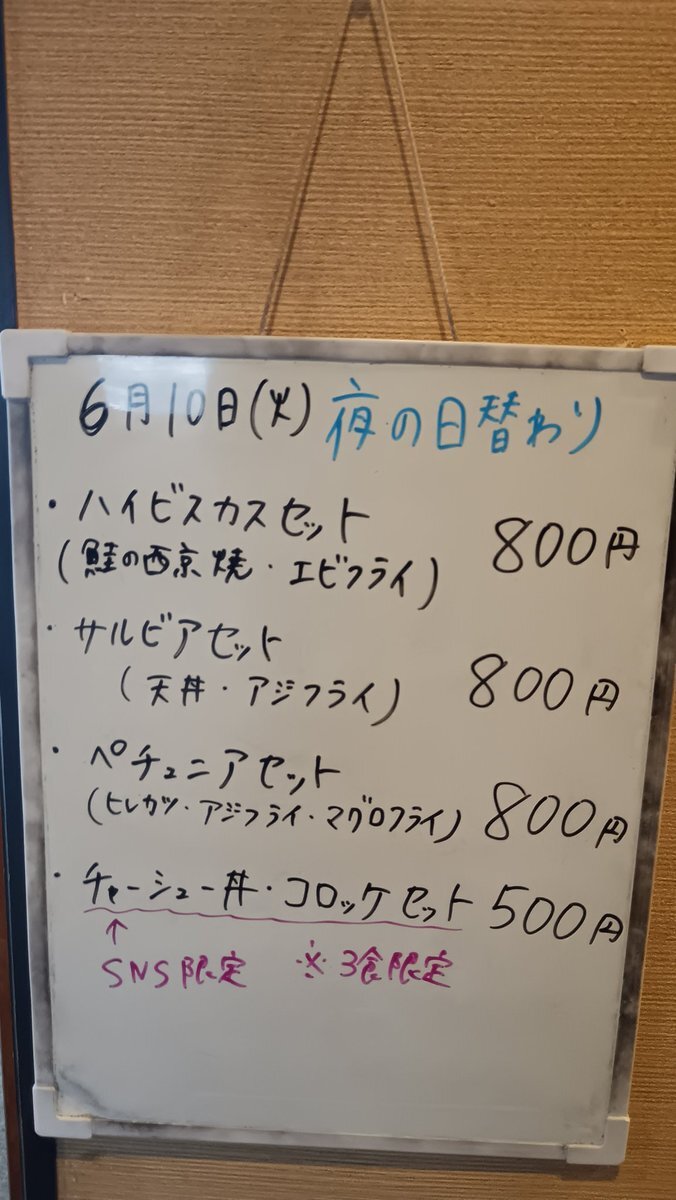 6月10日(火) 夜の日替わり
・ハイビスカスセット 800円
(鮭の西京焼・エビフライ)
・サルビアセット 800円
(天丼・アジフライ)
・ペチュニアセット 800円
(ヒレカツ・アジフライ・マグロフライ)
・チャーシュー丼・コロッケセット 500円
↑
SNS限定 ※3食限定